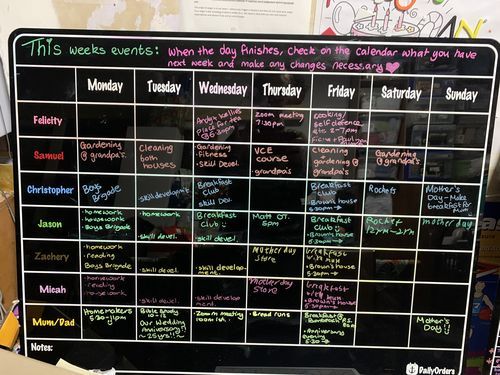 This weeks events: When the day finishes, check on the calendar what you have
next week and make any changes necessary
Monday Tuesday Wednesday Thursday Friday Saturday Sunday
Felicity
Andy + Kellies
Place for tea
@ 5:30pm
Zoom meeting
7:30pm
Cooking/
self defence
etc 2-7pm
Samuel
Gardening
@ grandpa's.
Cleaning
both
houses
Gardening
Fitness
Skill Devel.
VCE
course
grandpa's
Cleaning
gardening @
grandpa's
Gardening
@ grandpa's
Christopher
Boys
Brigade
skill developmt
Breakfast
Club
Skill Dev.
Breakfast
Club
Brown's house
5:30pm →
Rockets
Mother's
Day - Make
breakfast for
Mum
Jason
homework
housework
Boys Brigade
homework
skill devel.
Breakfast
Club
skill devel.
Matt OT.
5pm
Breakfast
Club
Brown's house
5:30pm →
Rocket
12pm-2pm
mother day
Zachery
homework
reading
Boys Brigade
skill devel.
skill develop-
ment.
Mother day
Store
breakfast
with Mum
Brown's house
5:30pm →
Micah
homework
reading
housework
skill devel.
skill develop-
ment.
Mother day
Store
breakfast
with Mum
Brown's house
5:30pm →
Mum/Dad
Homemakers
5:30-11pm
Bible Study
10-12
Our Wedding
Anniversary!!
~ 25yrs!! ~
Zoom meeting
Bread runs
Breakfast @
Anniversary
evening
5:30 →
Mother's
Day!!
Notes:
DailyOrders